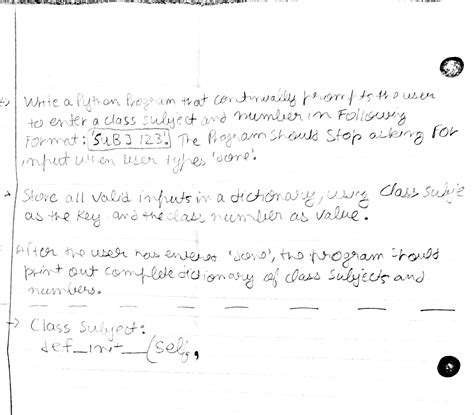 Write a Python Program that continually prompts the user
to enter a class subject and number in Following
Format: 'SUBJ 123'. The Program should Stop asking For
input when user types 'done'.
Store all valid inputs in a dictionary, using Class Subje
as the Key and the class number as value.
After the user has entered 'done', the program should
print out complete dictionary of class subjects and
numbers.
→ Class Subject:
def_init__(self,